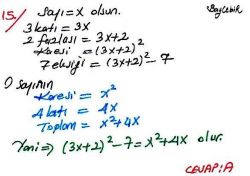 15/ Sayı = x olsun.
3 katı = 3x
2 fazlası = 3x+2
Karesi = (3x+2)²
7 eksiği = (3x+2)² - 7
O sayının
Karesi = x²
4 katı = 4x
Toplam = x²+4x
Yani ⇒ (3x+2)² - 7 = x² + 4x olur.
CEVAP: A